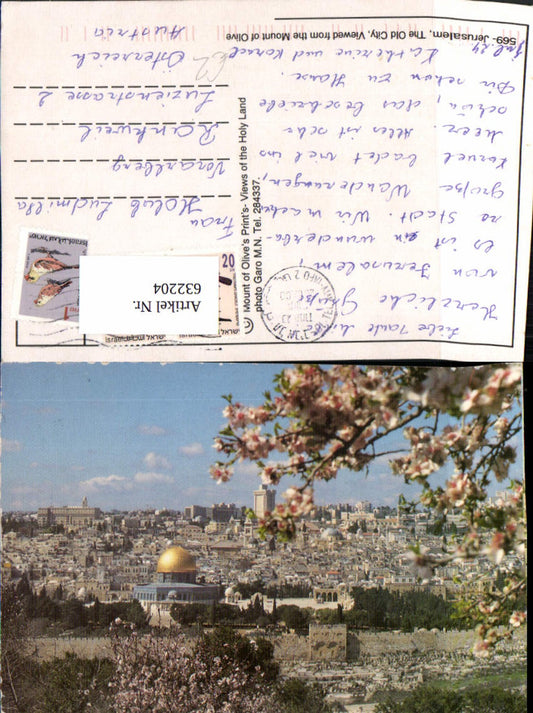 569- Jerusalem, The Old City, Viewed from the Mount of Olive
Liebe Tante
Herzliche Grüsse
von Jerusalem,
Es ist ein wunderba-
re Stadt. Wir machen
grosse Wanderungen,
Kornel badet viel ins
Meer. Alles ist sehr
schön, das beschriebe
Dir schon zu Hause.
Katherine und Kornel
Mount of Olive's Print's- Views of the Holy Land
photo Garo M.N. Tel. 284337.
20
1
Artikel Nr.
632204
Frau
Holub Ludmilla
Vorarlberg
Rankweil
Luzienstrasse 2
Österreich
Austria